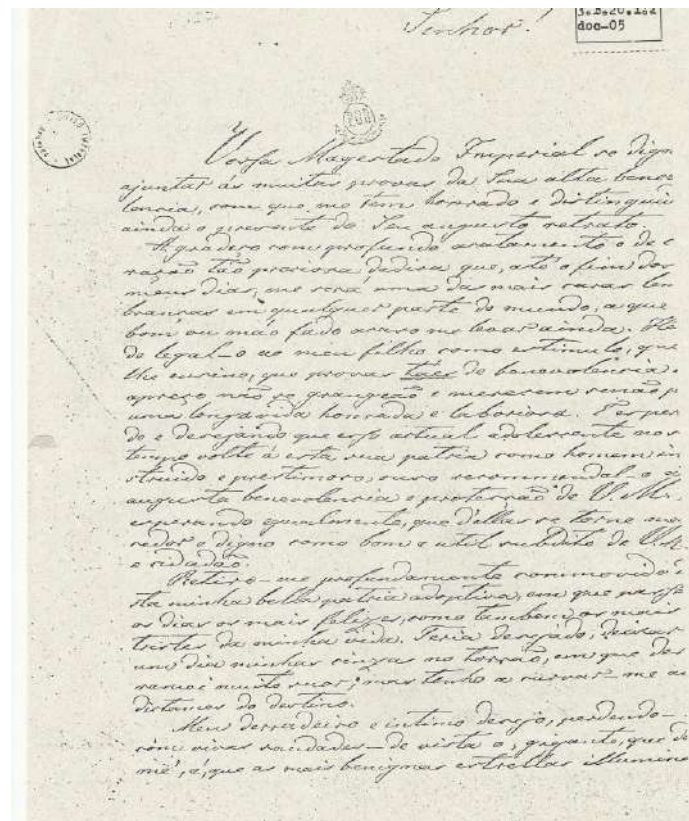 3.B.20.1.2
doc-05
Senhor!
200
Vossa Magestade Imperial se dign
ajuntar ás muitas provas da Sua alta bene
lencia, com que me tem honrado e distinguid
ainda o presente do Seu augusto retrato.
Agradeço com profundo acatamento o de c
ração tão preciosa dadiva que, até o fim dos
meus dias, me será uma das mais caras lem
branças em qualquer parte do mundo, a que
bom ou máo fado acaso me levar ainda. He
de legal-o ao meu filho como estimulo, que
lhe ensine, que provas taes de benevolencia e
apreço não se grangeão e merecem senão p
uma longa vida honrada e laboriosa. Esper
do e desejando que esse actual adolescente nos
tempo volte á esta sua patria como homem in
struido e prestimoso, ouso recommendal-o á
augusta benevolencia e protecção de V. M.
esperando egualmente, que d'ellas se torne me
redor e digno como bom e util subdito de V. M.
e cidadão.
Retiro-me profundamente commovido d'e
sta minha bella patria adoptiva, em que passe
os dias os mais felizes, como tambem os mais
tristes da minha vida. Teria desejado, deixar
um dia minhas cinzas no torrão, em que der
ramei muito suor; mas tenho a curvar-me ao
dictames do destino.
Meu derradeiro e intimo desejo, perdendo-
com vivas saudades - de vista o gigante, que
é, que as mais benignas estrellas illumine